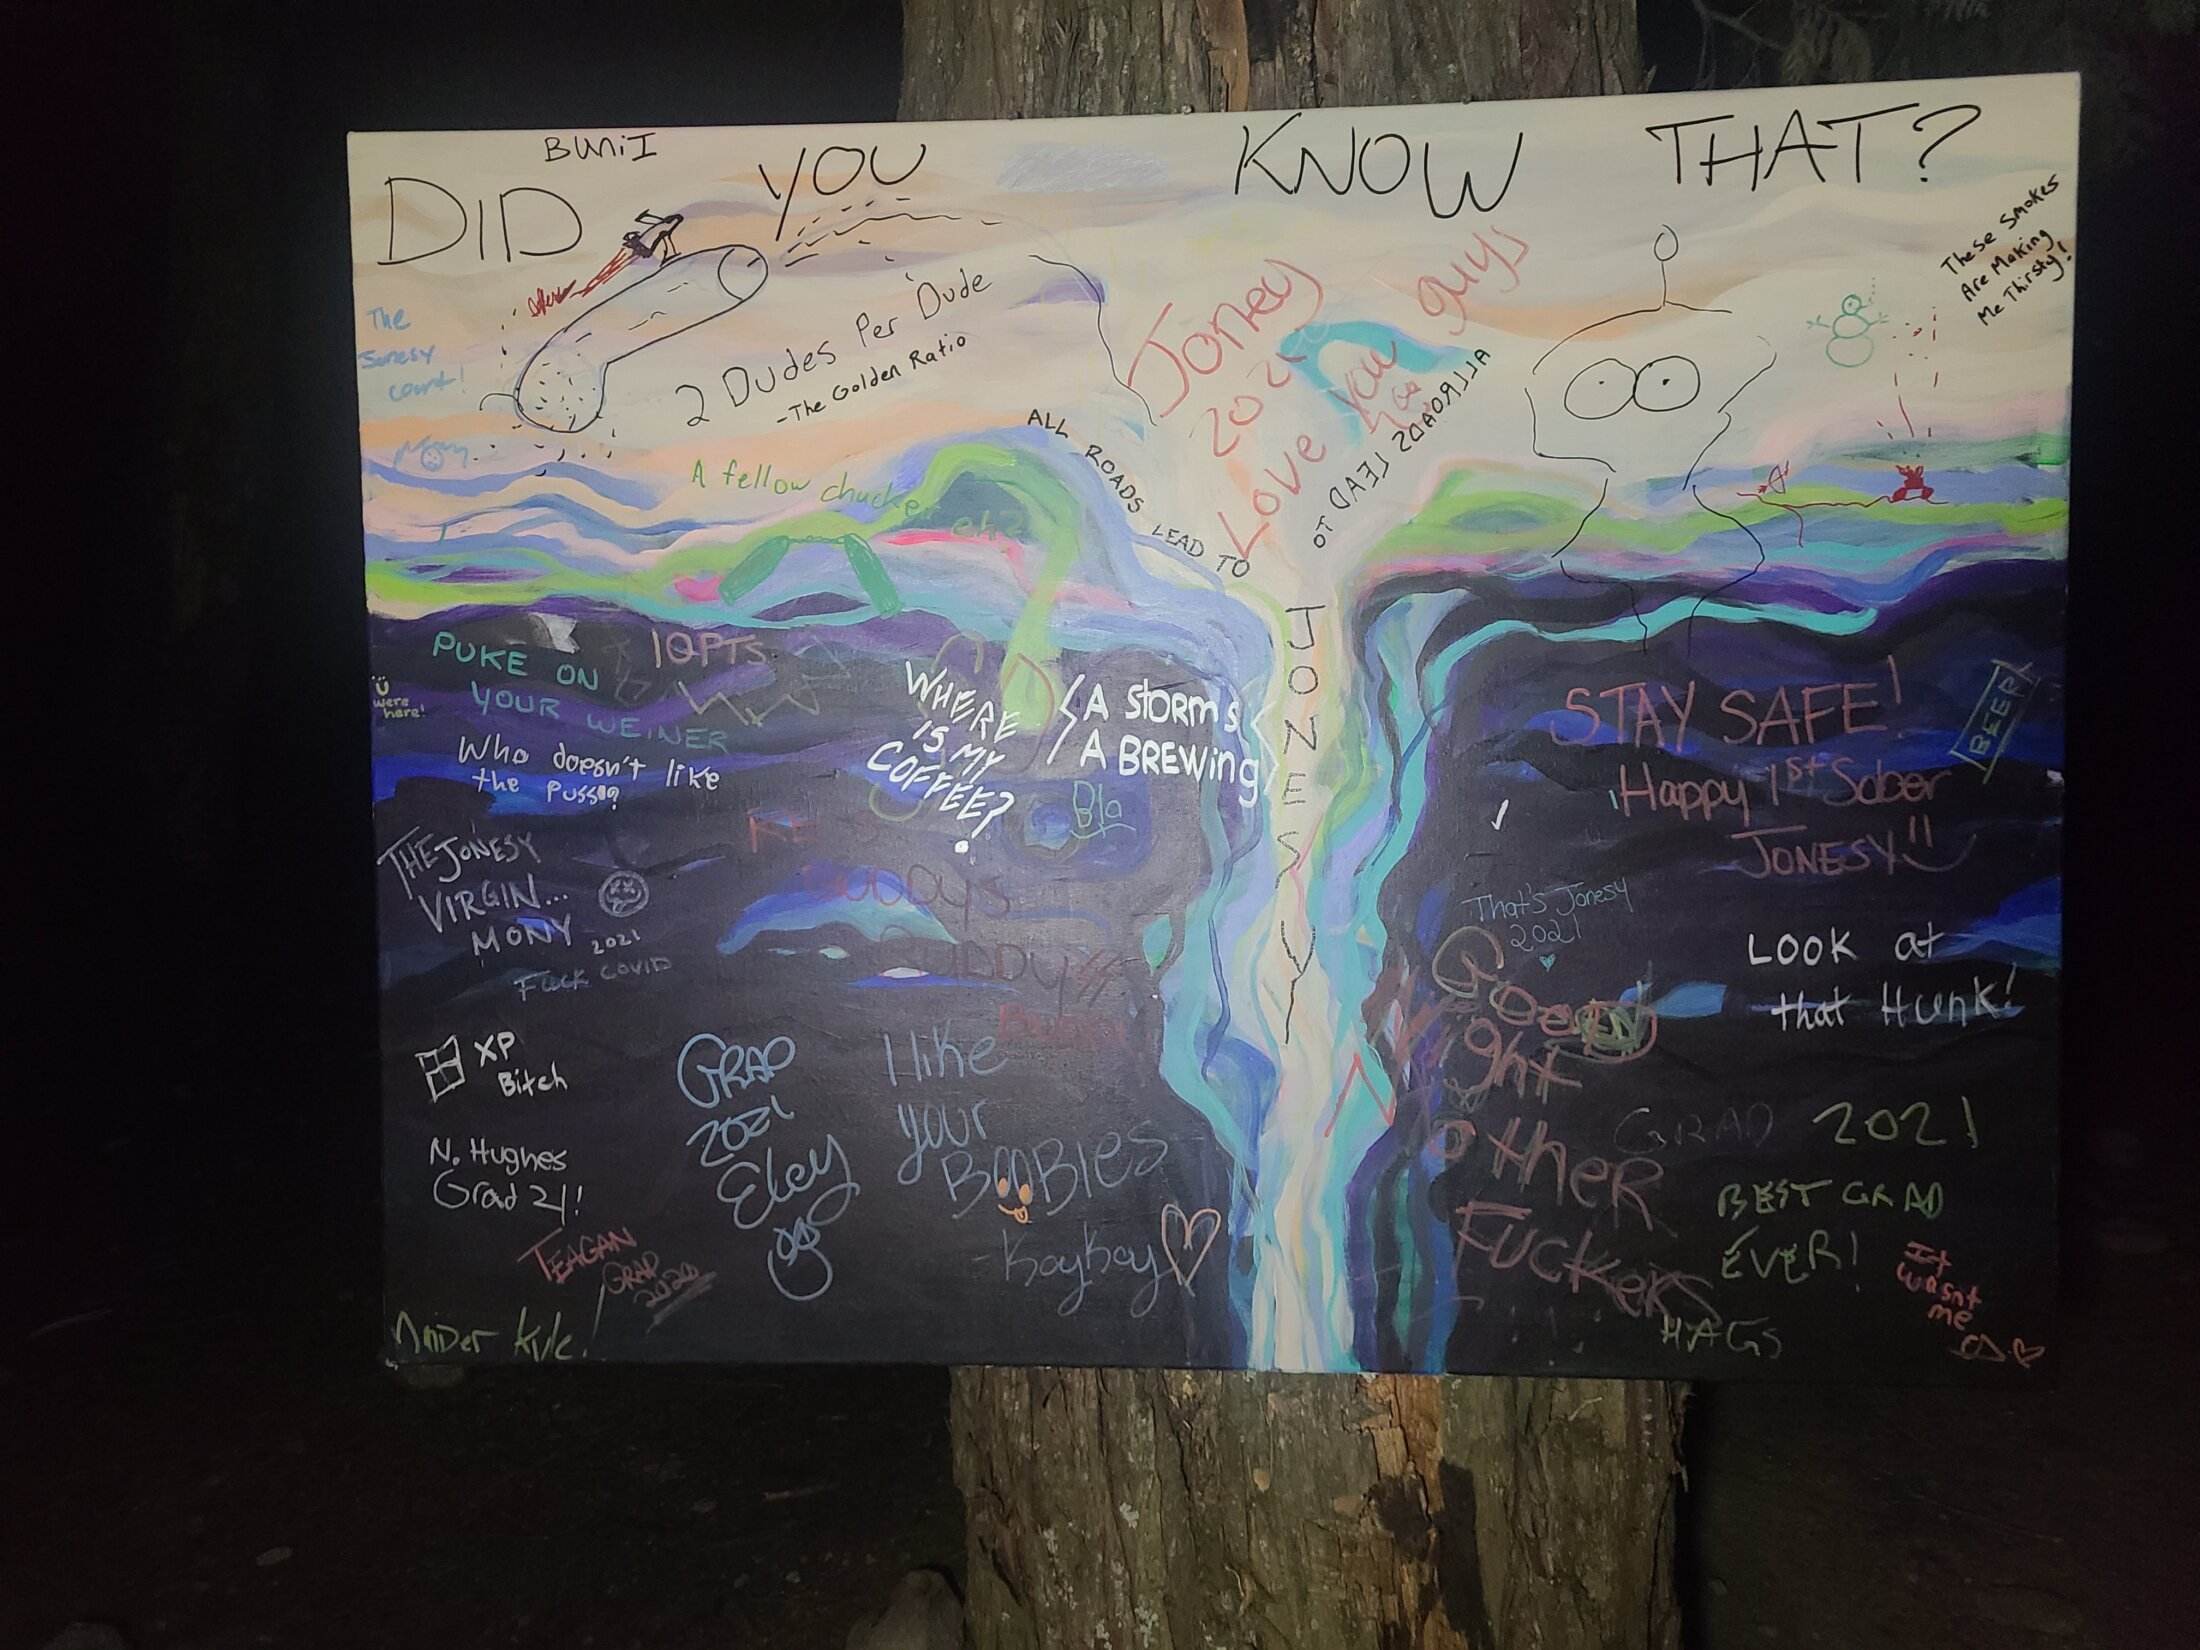 BUNiI
DID YOU KNOW THAT?
These Smokes
Are Making
Me Thirsty!
The
Jonesy
count!
2 Dudes Per Dude
-The Golden Ratio
Joney
2021
Love you guys
A fellow chucker eh?
ALL ROADS LEAD TO
ALL ROADS LEAD TO
JONESY
PUKE ON
YOUR WEINER
10PTS
U
were
here!
Who doesn't like
the
WHERE
IS MY
COFFEE?
A STORMS
A BREWing
Bla
STAY SAFE!
Happy 1st Sober
JONESY!!
BEER
THE JONESY
VIRGIN...
MONY
2021
FUCK COVID
GOODYS
BUDDYS
That's Jonesy
2021
LOOK at
that Hunk!
XP
Bitch
GRAD
2021
Eley
I like
your
BOOBIES
-KayKay
Good
Night
Mother
FUCKERS
GRAD 2021
BEST GRAD
EVER!
HAGS
It
wasnt
me
N. Hughes
Grad 21!
TEAGAN
GRAD
2020